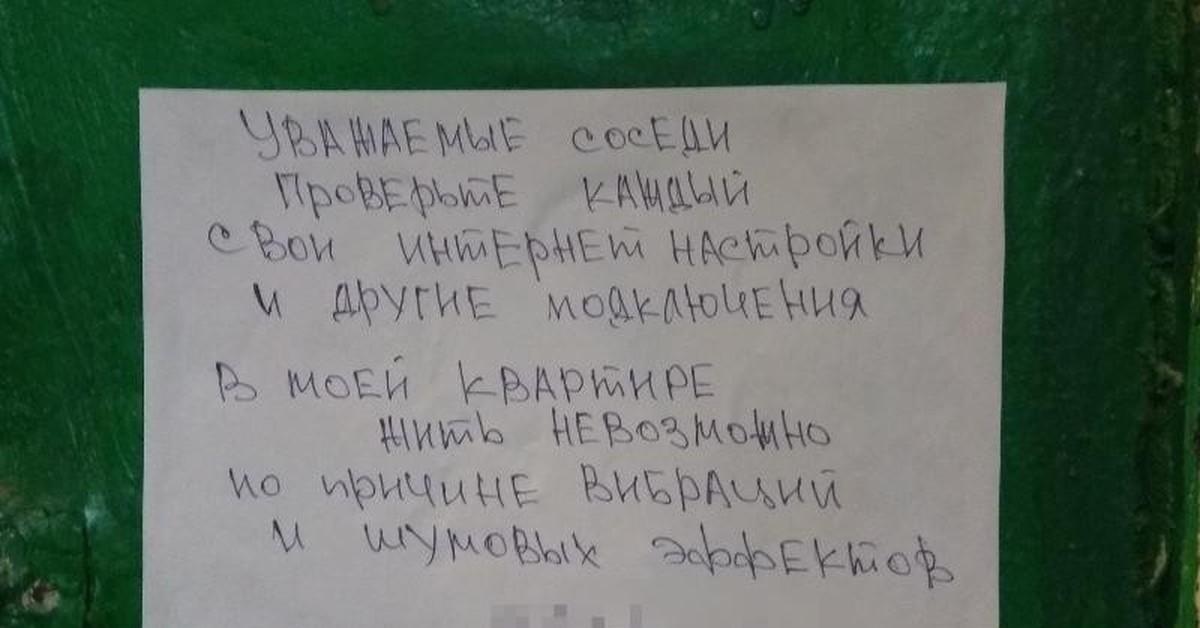 УВАЖАЕМЫЕ СОСЕДИ
ПРОВЕРЬТЕ КАЖДЫЙ
СВОИ ИНТЕРНЕТ НАСТРОЙКИ
И ДРУГИЕ ПОДКЛЮЧЕНИЯ
В МОЕЙ КВАРТИРЕ
ЖИТЬ НЕВОЗМОЖНО
ПО ПРИЧИНЕ ВИБРАЦИЙ
И ШУМОВЫХ ЭФФЕКТОВ